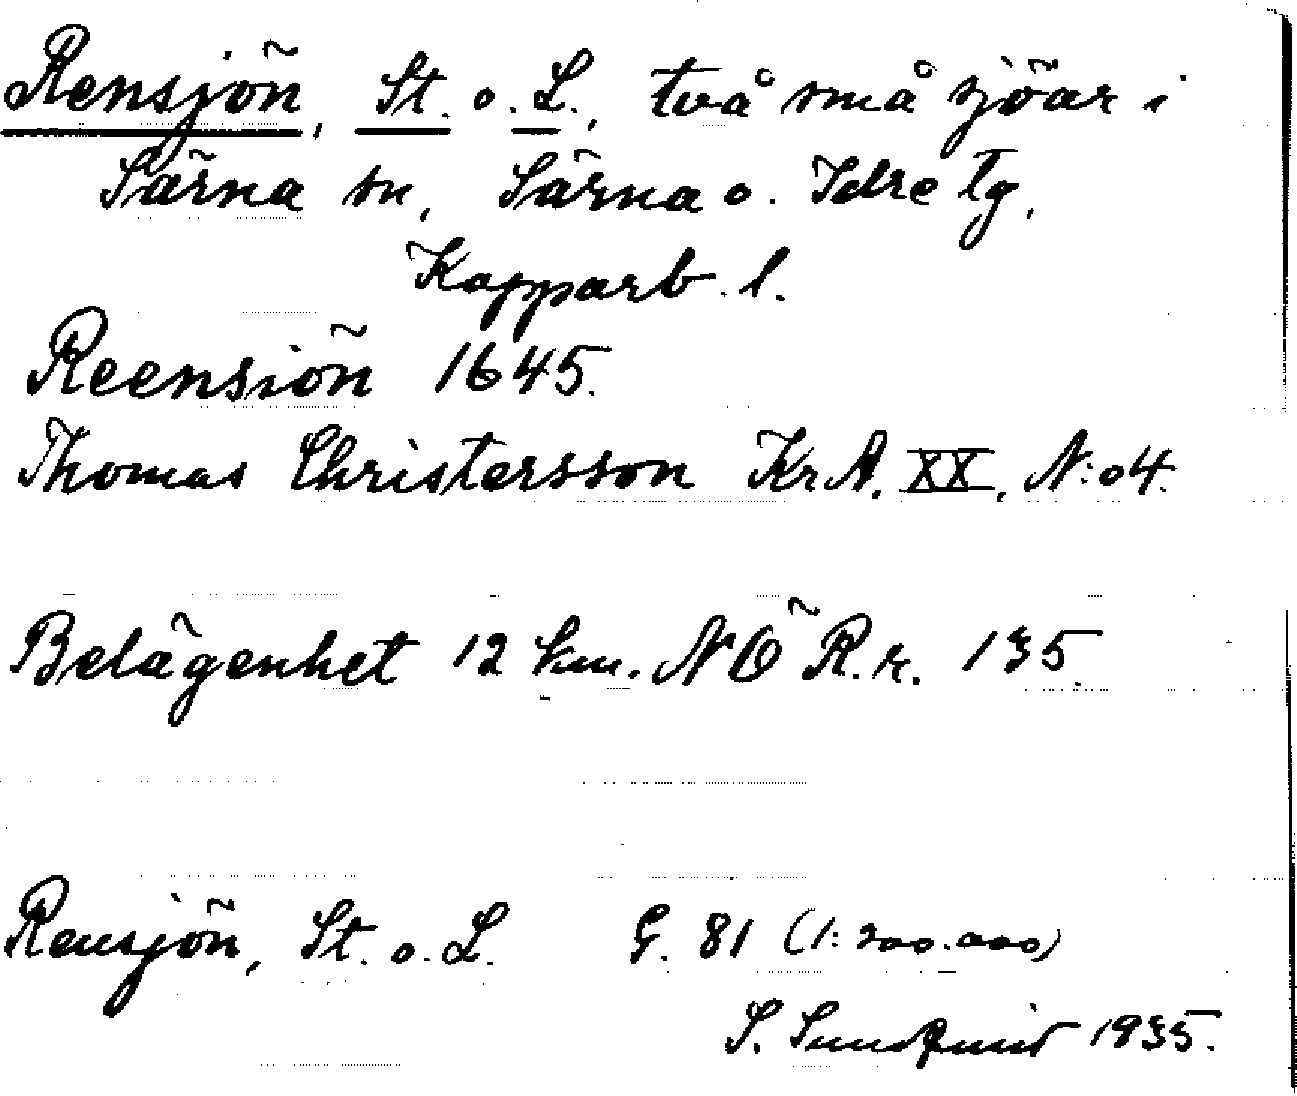 Rensjön, St. o. L., två små sjöar i
Särna sn, Särna o. Idre tg,
Kopparb. l.
Reensiön 1645.
Thomas Christersson Kr A. XX, N:o 4.
Belägenhet 12 km. NÖ R.r. 135.
Rensjön, St. o. L. G. 81 (1:200.000)
S. Sundqvist 1935.